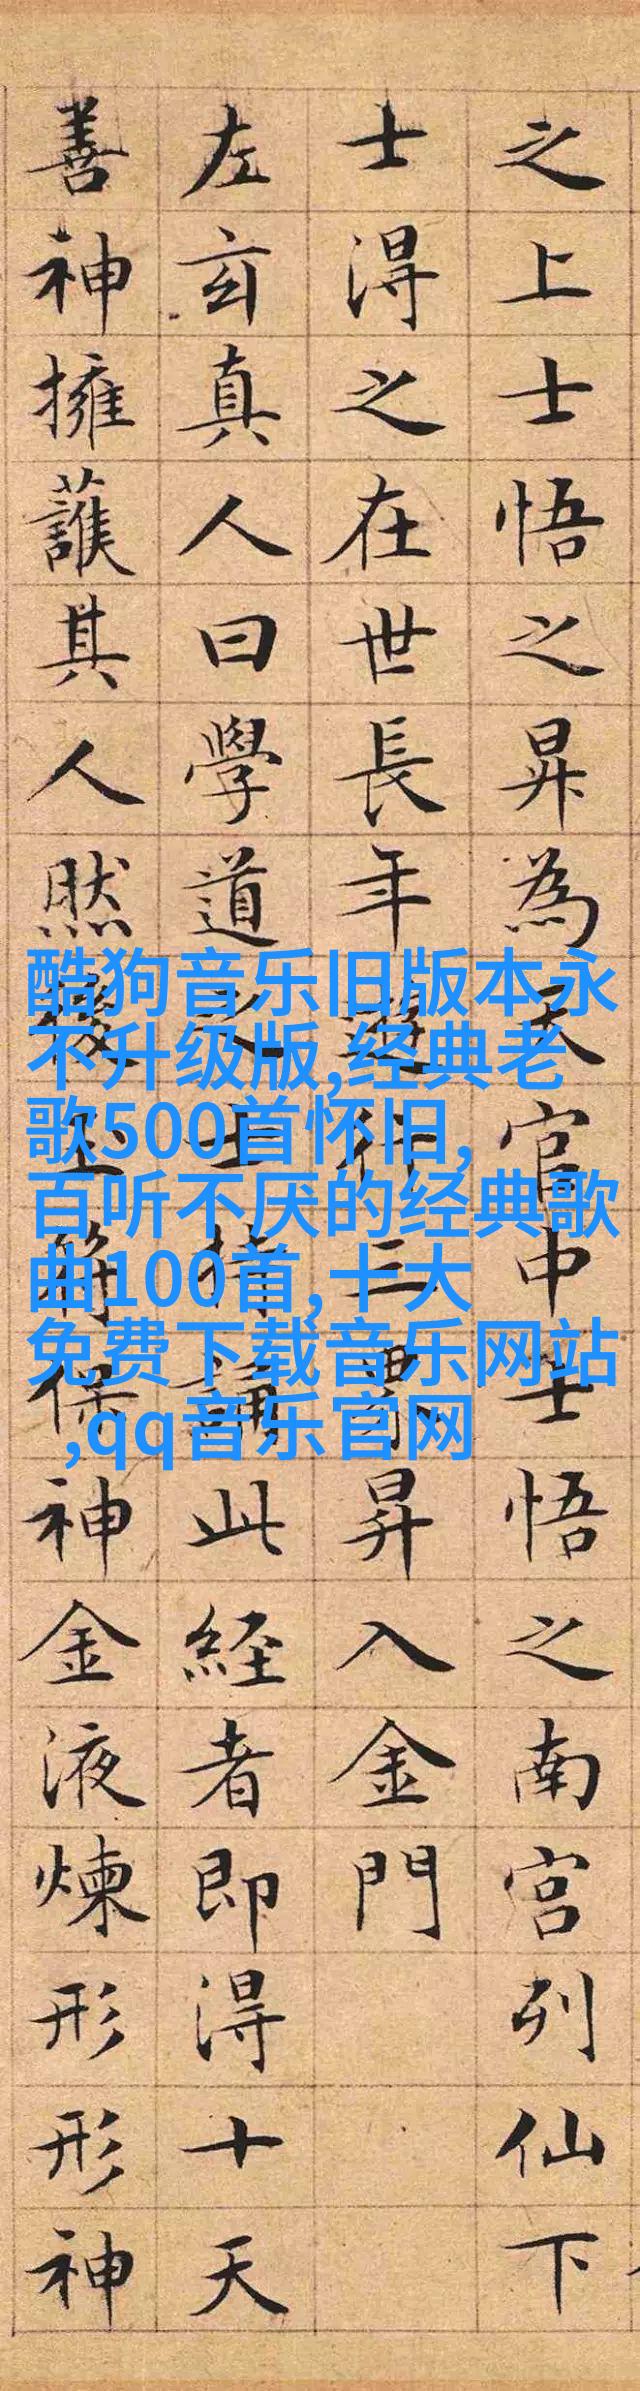 之上士悟之昇為天官中士悟之南宮列仙下
士淂之在世長年遊行三界昇入金門
左玄真人曰學道之士持誦此経者即淂十天
善神擁護其人然後玉符保神金液煉形形神
酷狗音乐旧版本永
不升级版,经典老
歌500首怀旧,
百听不厌的经典歌
曲100首,十大
免费下载音乐网站
,qq音乐官网